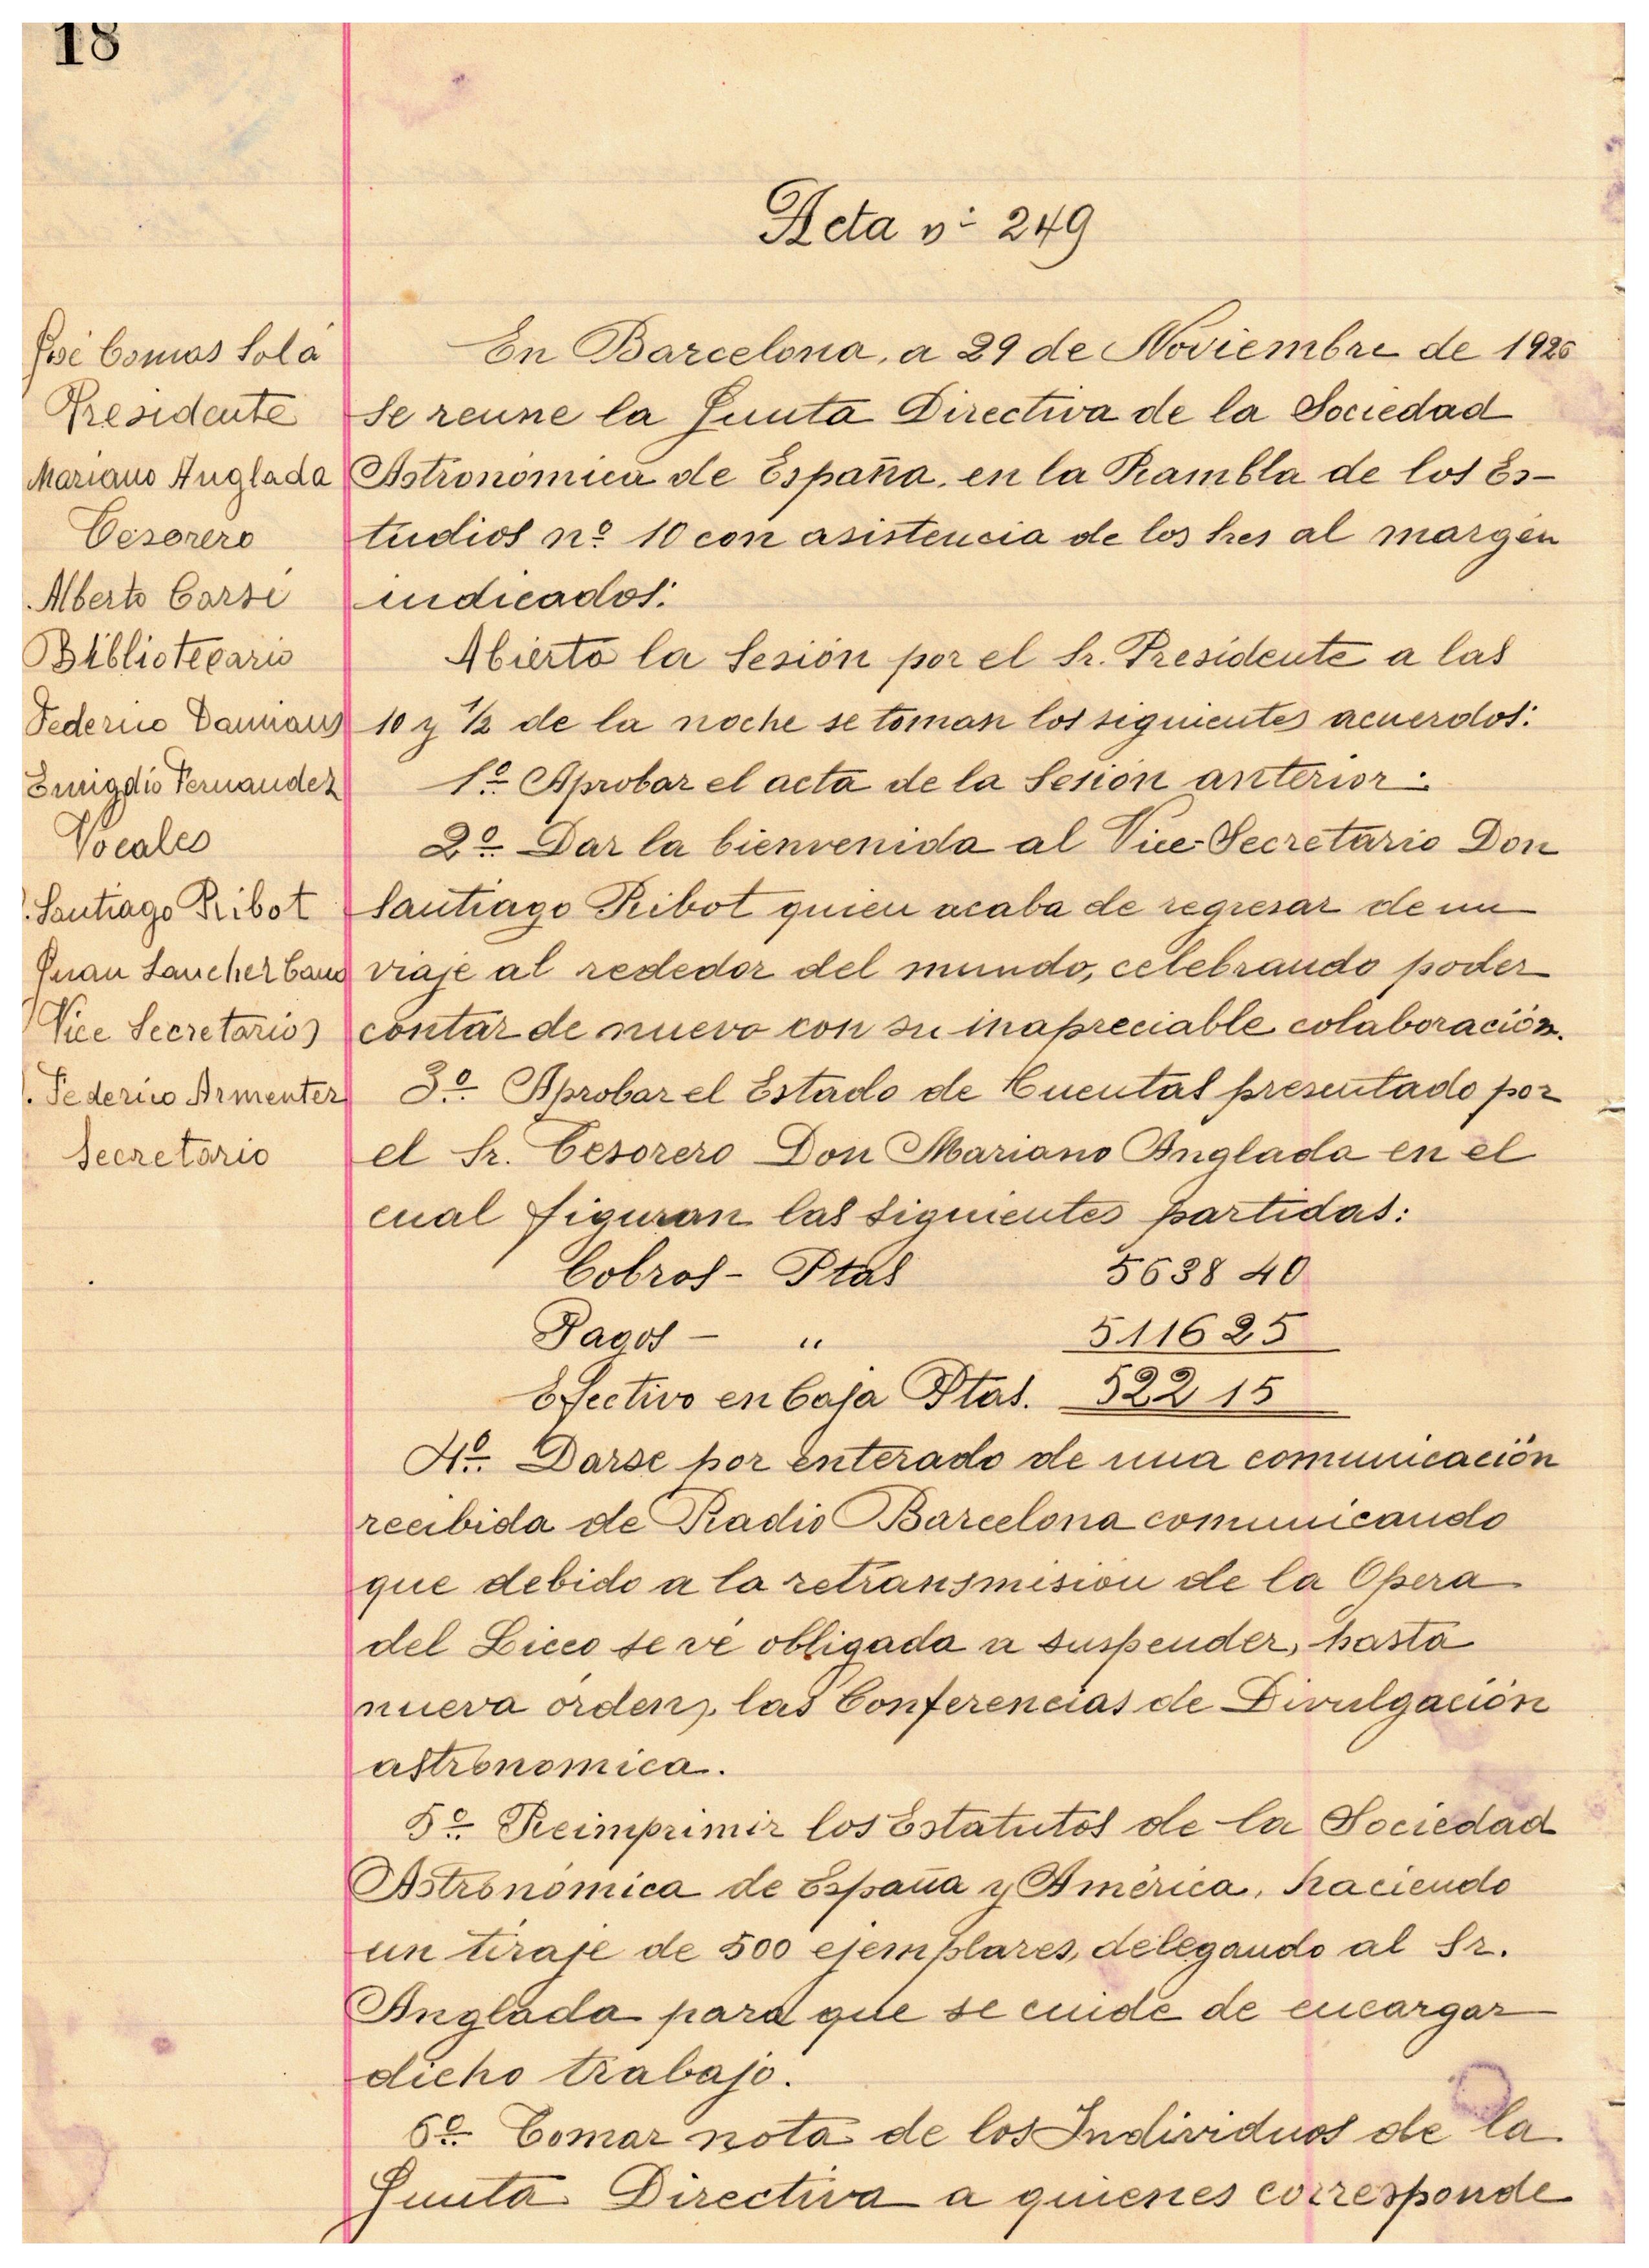 18
Acta nº 249
José Comas Solá
Presidente
Mariano Anglada
Tesorero
Alberto Carsí
Bibliotecario
Federico Damians
Emigdio Fernandez
Vocales
Santiago Ribot
Juan Sanchez
(Vice Secretarios)
Federico Armenter
Secretario
En Barcelona, a 29 de Noviembre de 1926
se reune la Junta Directiva de la Sociedad
Astronómica de España, en la Rambla de los Es-
tudios nº 10 con asistencia de los Sres al margen
indicados:
Abierta la Sesión por el Sr. Presidente a las
10 y 1/2 de la noche se toman los siguientes acuerdos:
1º Aprobar el acta de la Sesión anterior.
2º Dar la bienvenida al Vice-Secretario Don
Santiago Ribot quien acaba de regresar de un
viaje al rededor del mundo, celebrando poder
contar de nuevo con su inapreciable colaboración.
3º Aprobar el Estado de Cuentas presentado por
el Sr. Tesorero Don Mariano Anglada en el
cual figuran las siguientes partidas:
Cobros - Ptas 5638 40
Pagos - " 5116 25
Efectivo en Caja Ptas. 522 15
4º Darse por enterado de una comunicación
recibida de Radio Barcelona comunicando
que debido a la retransmisión de la Opera
del Liceo se vé obligada a suspender, hasta
nueva órden, las Conferencias de Divulgación
astronomica.
5º Reimprimir los Estatutos de la Sociedad
Astronómica de España y América, haciendo
un tiraje de 500 ejemplares, delegando al Sr.
Anglada para que se cuide de encargar
dicho trabajo.
6º Tomar nota de los Individuos de la
Junta Directiva a quienes corresponde